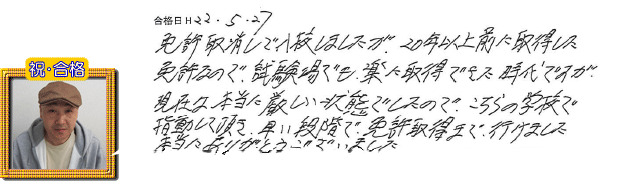 合格日 H 22・5・27
免許取消しで入校しましたが、20年以上前に取得した
祝・合格
免許なので、試験場でも楽に取得できた時代ですが、
現在は本当に厳しい状態でしたので、こちらの学校で
指動して頂き、早い段階で免許取得まで、行けました
本当にありがとうございました